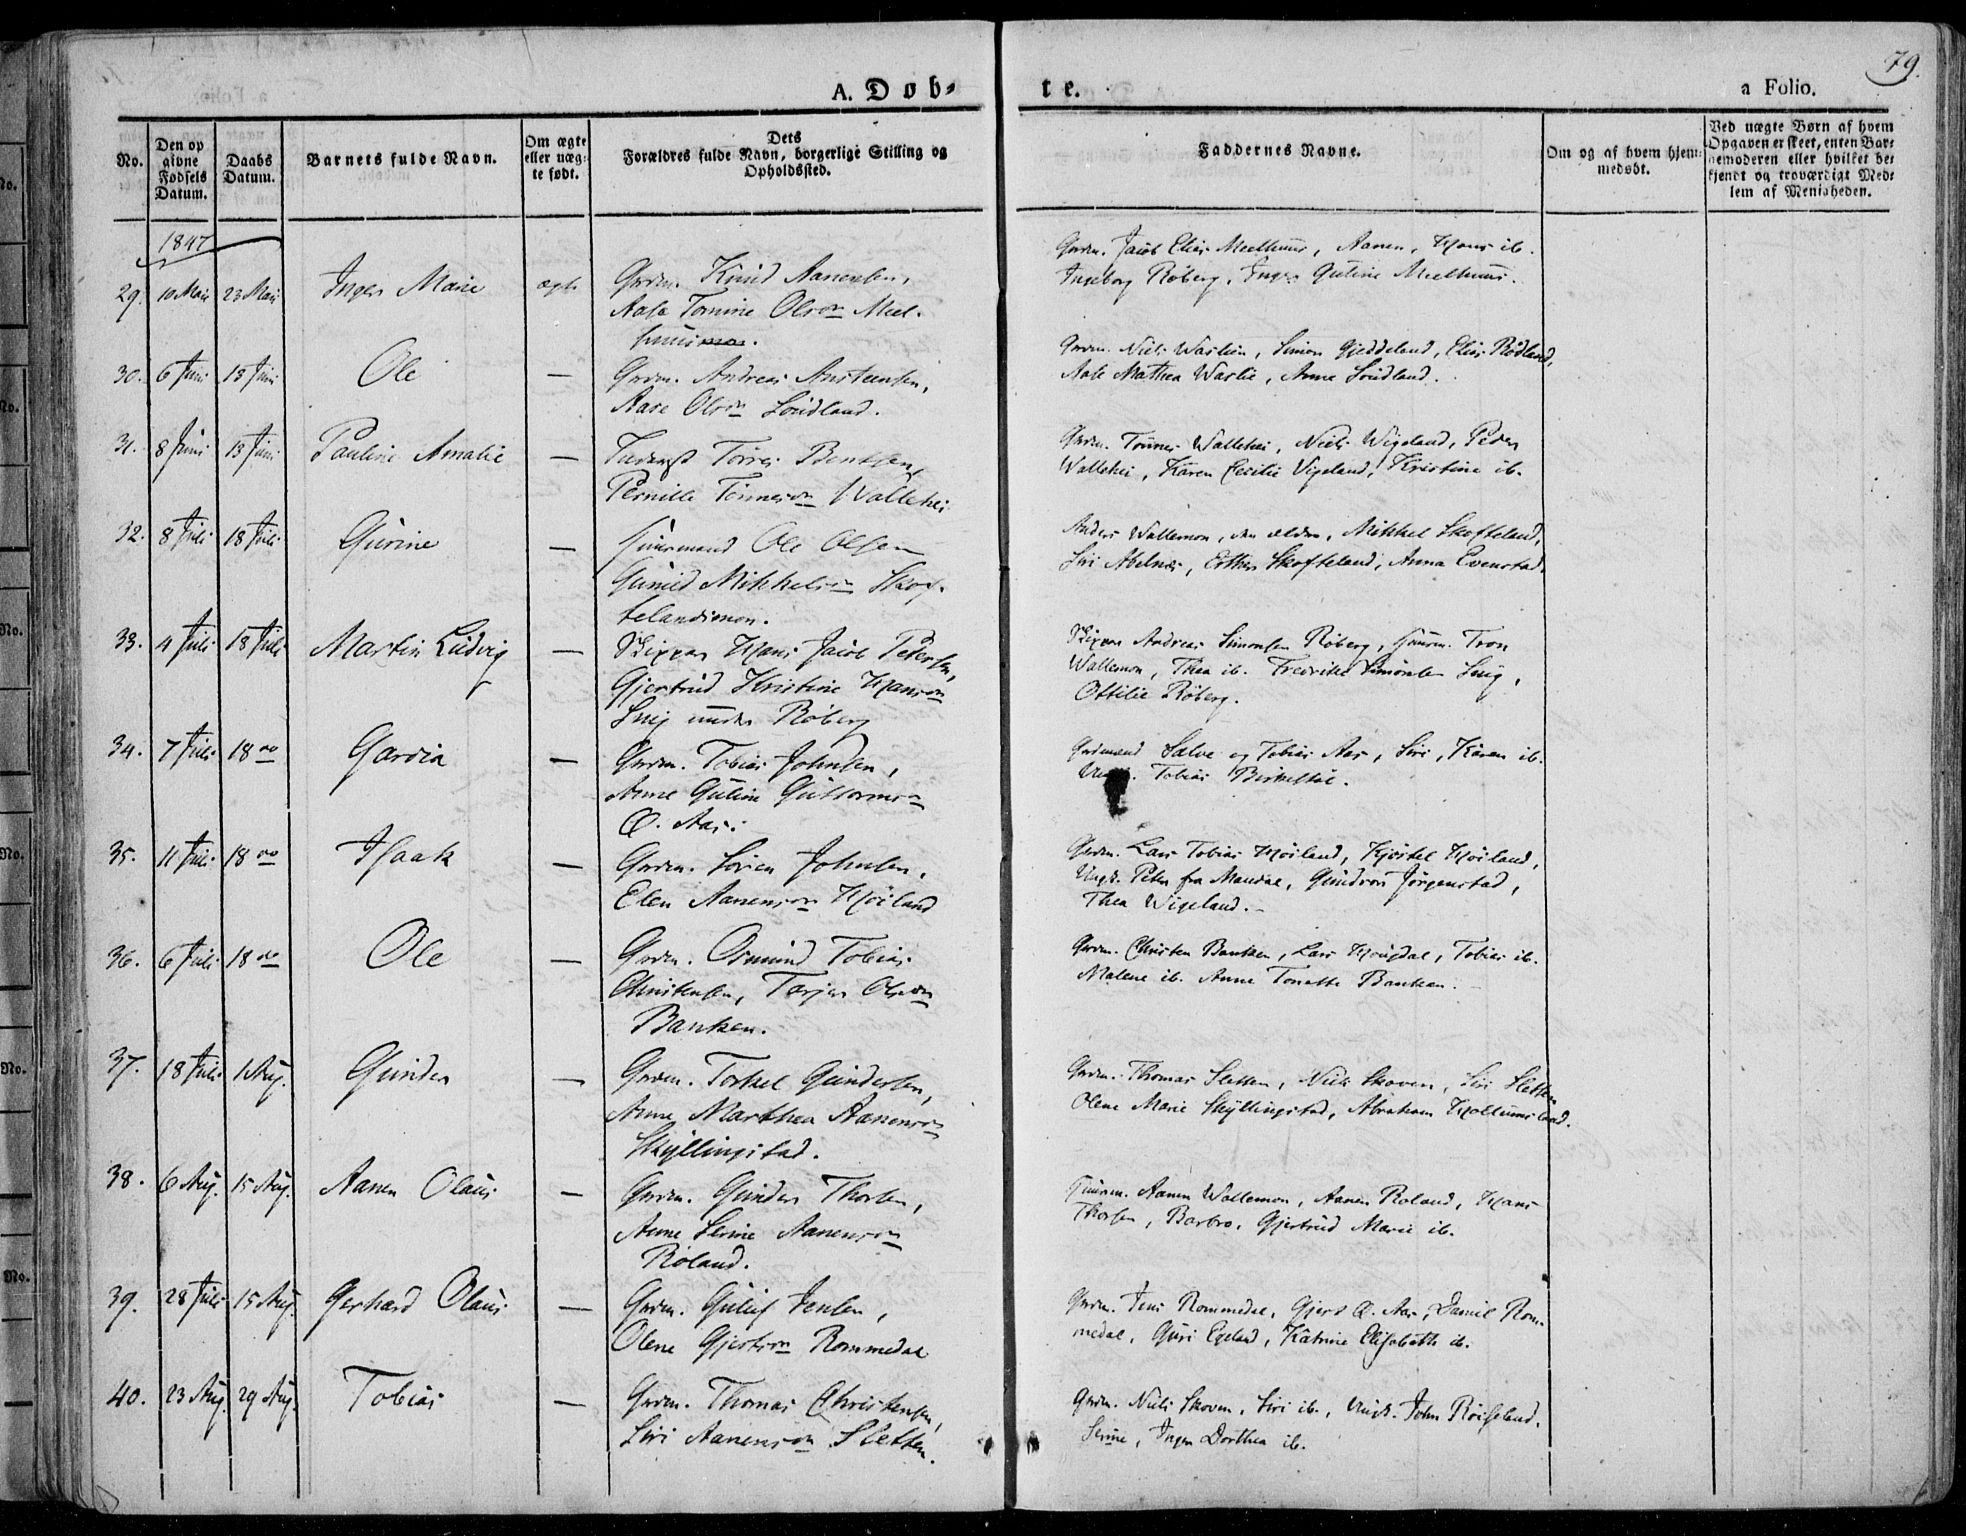 79.
A. Døb-
te.
a Folio.
No.
Den op
givne
Fødsels
Datum.
Daabs
Datum.
Barnets fulde Navn.
Om ægte
eller uæg-
te født.
Dets
Forældres fulde Navn, borgerlige Stilling og
Opholdssted.
Faddernes Navne.
Om og af hvem hjem-
medøbt.
Ved uægte Børn af hvem
Opgaven er skeet, enten Bar-
nemoderen eller hvilket be-
kjendt og troværdigt Med-
lem af Menigheden.
1847
29. 10 Mai 23 Mai Inger Marie ægte Grdm. Knud Aanensen,
Aase Tomine Olsdn Meel-
huus
Grdm. Jacob Elias Meelhuus, Aanen, Hans ib.
Ingeborg Røberg, Inger Guline Meelhuus.
30. 6 Juni 13 Juni Ole — Grdm. Andreas Anstensen,
Aase Olsdn Søudland.
Grdm. Niels Waslien, Simon Gjeddeland, Elias Rødland,
Aase Mathea Waslie, Anne Søudland.
31. 8 Juni 13 Juni Pauline Amalie — Torres Bentsen,
Pernille Tønnesdn Wallehei
Grdm. Tønnes Wallehei, Niels Wigeland, Peder
Wallehei, Karen Cecilie Vigeland, Kristine ib.
32. 8 Juli 18 Juli Gurine — Huusmand Ole Olsen
Gunild Mikkelsdn Skof-
telandsmon.
Anders Wallemon, den ældre, Mikkel Skofteland,
Siri Abelnes, Esther Skofteland, Anna Evenstad.
33. 4 Juli 18 Juli Martin Ludvig — Skipper Hans Jacob Petersen,
Gjertrud Kristine Hansdn
Snig under Røberg
Skipper Andreas Simonsen Røberg, Huusm. Tron
Wallemon, Thea ib. Fredrikke Simonsen Snig,
Ottilie Røberg.
34. 7 Juli 18 do Gardia — Grdm. Tobias Johnsen,
Anne Guline Guttormsdn
Ø. Aas.
Grdmænd Salve og Tobias Aas, Siri, Karen ib.
Tobias Birkelie.
35. 11 Juli 18 do Isaak — Grdm. Søren Johnsen,
Elen Aanensdn Høiland
Grdm. Lars Tobias Høiland, Kjøstel Høiland,
Ungk. Peter fra Mandal, Gundvor Jørgenstad,
Thea Wigeland.
36. 6 Juli 18 do Ole — Grdm. Osmund Tobias
Christensen, Tarjer Olsdn
Banken.
Grdm. Christen Banken, Lars Hougdal, Tobias ib.
Malene ib. Anne Tonette Banken.
37. 18 Juli 1 Aug. Gunder — Grdm. Torkel Gundersen,
Anne Marthea Aanensdn
Skyllingstad.
Grdm. Thomas Sletten, Niels Skoven, Siri Sletten
Olene Marie Skyllingstad, Abraham Hollumsland.
38. 6 Aug. 15 Aug. Aanen Olaus — Grdm. Gunder Thorsen,
Anne Serine Aanensdn
Roland.
Huusm. Aanen Wallemon, Aanen Roland, Hans
Thorsen, Barbro, Gjertrud Marie ib.
39. 28 Juli 15 Aug. Gerhard Olaus — Grdm. Guluf Jensen,
Olene Gjertsdn Rommedal
Grdm. Jens Rommedal, Gjert Ø. Aas, Daniel Rom-
medal, Guri Egeland, Katrine Elisabeth ib.
40. 23 Aug. 29 Aug. Tobias — Grdm. Thomas Christensen,
Siri Aanensdn Sletten.
Grdm. Niels Skoven, Siri ib., Ungk. John Røiseland,
Serine, Inger Dorthea ib.